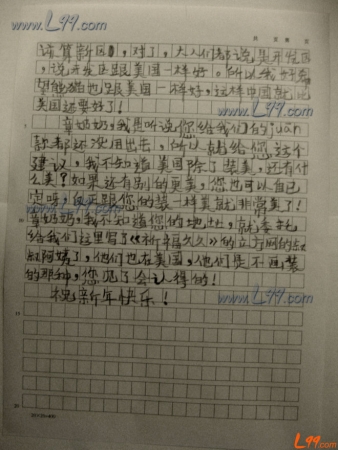 L99.com
该算新区,对了,大人们都说是开发区
,说开发区跟美国一样好。所以我
也跟美国一样好,这样中国就比
美国还要好了!
章奶奶,我是听说您给我们的yuan
款都还没用出去,所以就给您这个
建议,我不知道美国除了装美,还有什
么美?如果还有别的更美,您也可以自己
定呀,反正跟您的装一样美就非常美了!
章奶奶,我不知道您的地址,就
给我们这里写了《祈福久久》的立方网的叔
叔阿姨了,他们也在美国,他们是不画装
的那种,您见了会认得的!
祝新年快乐!
www.L99.com
www.L99.com
www.L99.com
L99.com